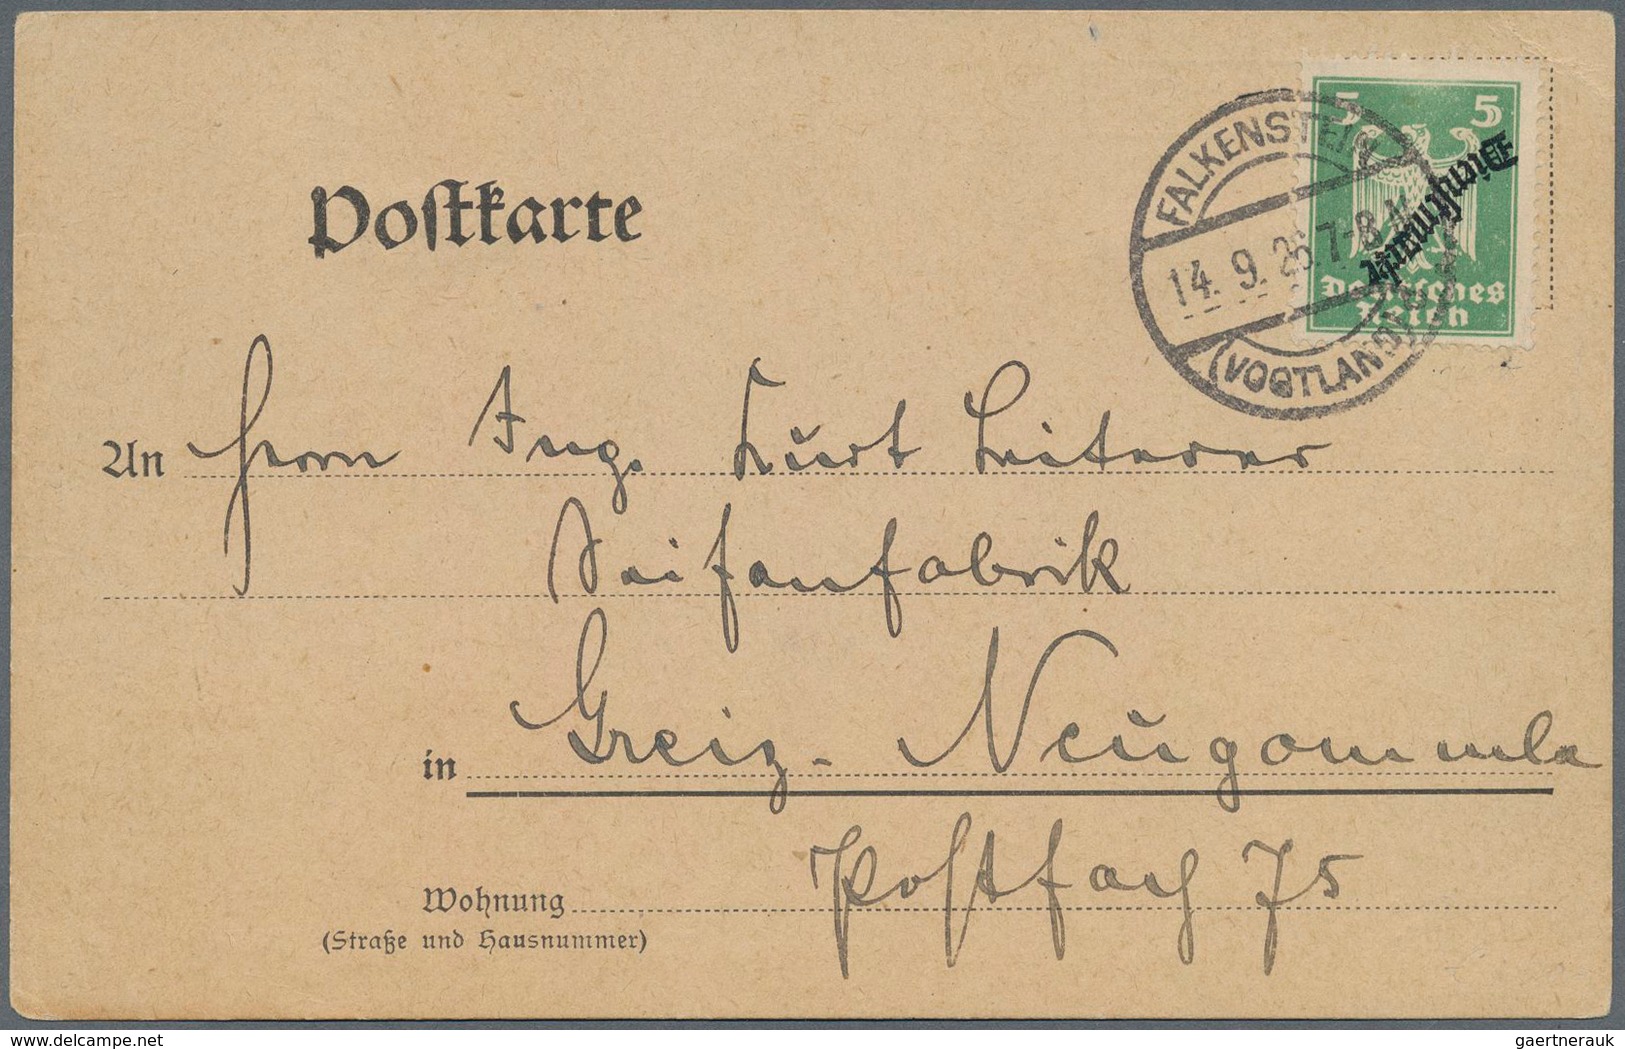 Postkarte
5 5
Dienstmarke
Deutsches
Reich
FALKENSTEIN
14. 9. 25. 7-8 N.
(VOGTLAND)
An Herrn Ing. Kurt Leiterer
Seifenfabrik
in Greiz-Neugommla
Postfach 75
Wohnung
(Straße und Hausnummer)
delcampe.net
gaertnerauk